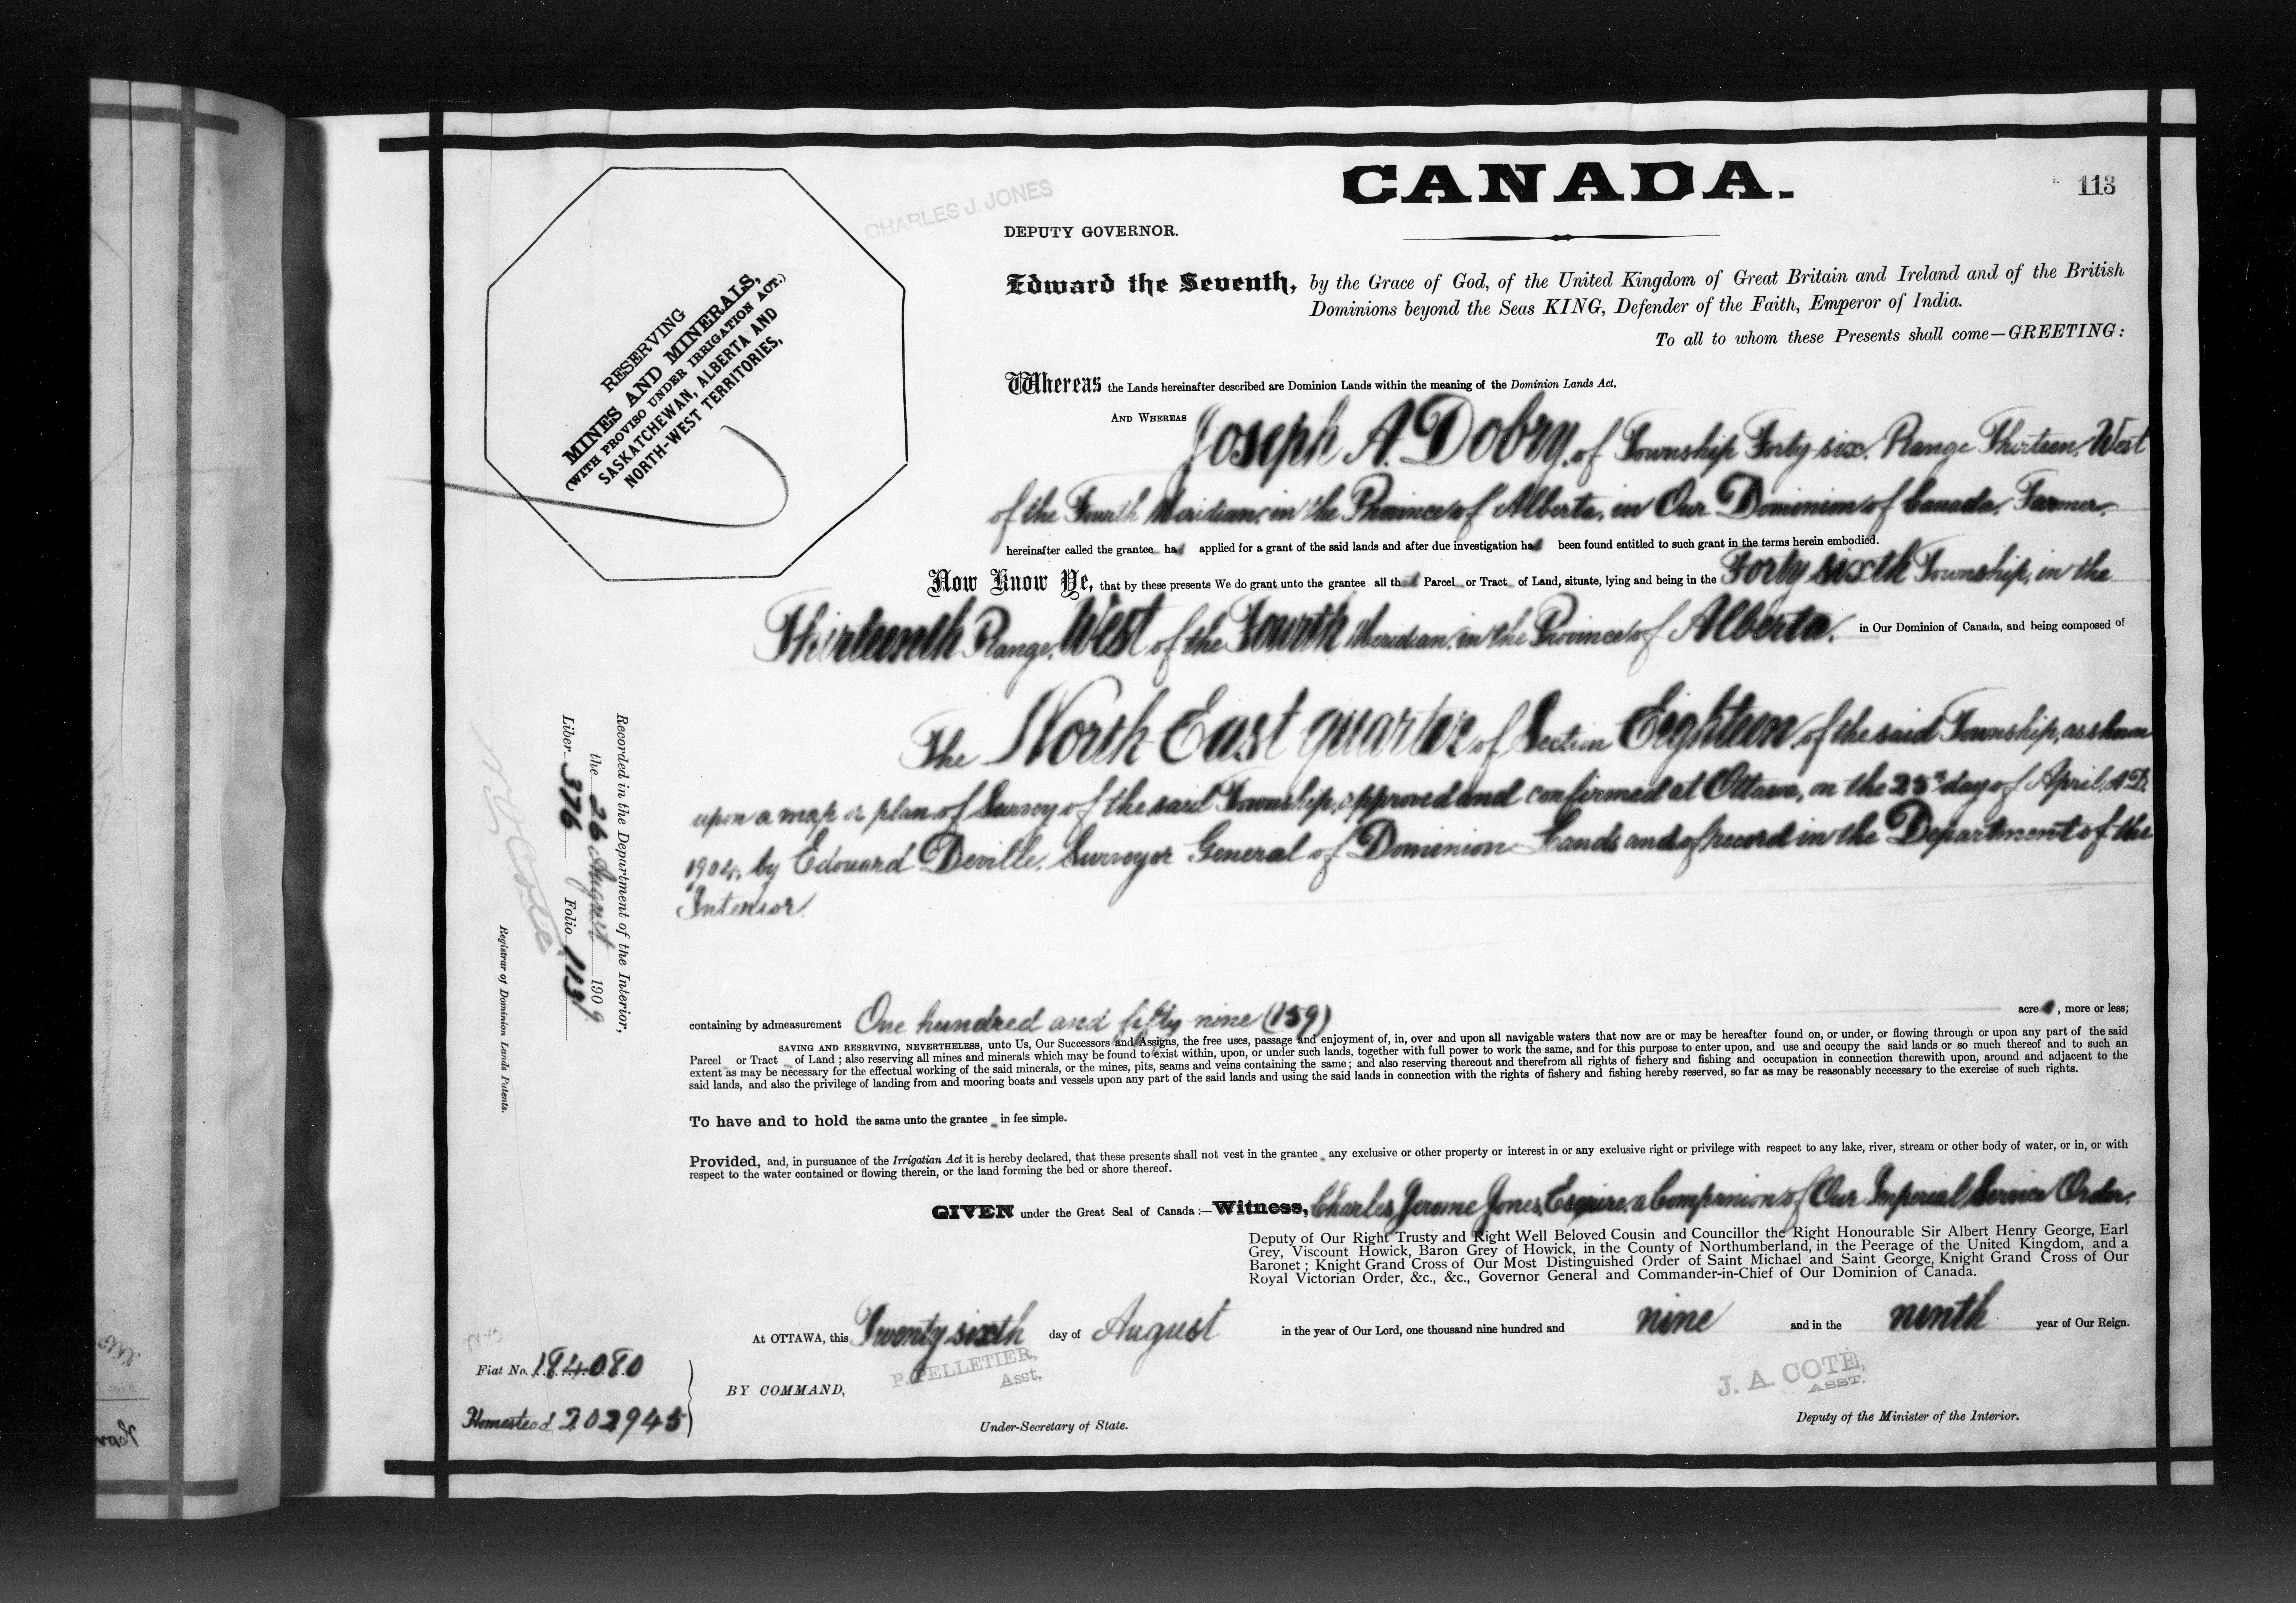 CANADA.
113
CHARLES J. JONES
DEPUTY GOVERNOR.
RESERVING
MINES AND MINERALS,
(WITH PROVISO UNDER IRRIGATION ACT.)
SASKATCHEWAN, ALBERTA AND
NORTH-WEST TERRITORIES,
Edward the Seventh, by the Grace of God, of the United Kingdom of Great Britain and Ireland and of the British
Dominions beyond the Seas KING, Defender of the Faith, Emperor of India.
To all to whom these Presents shall come—GREETING:
Whereas the Lands hereinafter described are Dominion Lands within the meaning of the Dominion Lands Act.
AND WHEREAS Joseph A. Dobry, of Township Forty six, Range Thirteen, West
of the Fourth Meridian, in the Province of Alberta, in Our Dominion of Canada, Farmer,
hereinafter called the grantee has applied for a grant of the said lands and after due investigation has been found entitled to such grant in the terms herein embodied.
Now Know Ye, that by these presents We do grant unto the grantee all that Parcel or Tract of Land, situate, lying and being in the Forty sixth Township, in the
Thirteenth Range, West of the Fourth Meridian, in the Province of Alberta, in Our Dominion of Canada, and being composed of
The North East quarter of Section Eighteen, of the said Township, as shown
upon a map or plan of Survey of the said Township, approved and confirmed at Ottawa, on the 25th day of April, A.D.
1904, by Edouard Deville, Surveyor General of Dominion Lands and of record in the Department of the
Interior.
Recorded in the Department of the Interior,
the 26 August 1909
Liber 376 Folio 113
Registrar of Dominion Lands Patents.
containing by admeasurement One hundred and fifty nine (159) acres, more or less;
SAVING AND RESERVING, NEVERTHELESS, unto Us, Our Successors and Assigns, the free uses, passage and enjoyment of, in, over and upon all navigable waters that now are or may be hereafter found on, or under, or flowing through or upon any part of the said
Parcel or Tract of Land; also reserving all mines and minerals which may be found to exist within, upon, or under such lands, together with full power to work the same, and for this purpose to enter upon, and use and occupy the said lands or so much thereof and to such an
extent as may be necessary for the effectual working of the said minerals, or the mines, pits, seams and veins containing the same; and also reserving thereout and therefrom all rights of fishery and fishing and occupation in connection therewith upon, around and adjacent to the
said lands, and also the privilege of landing from and mooring boats and vessels upon any part of the said lands and using the said lands in connection with the rights of fishery and fishing hereby reserved, so far as may be reasonably necessary to the exercise of such rights.
To have and to hold the same unto the grantee in fee simple.
Provided, and, in pursuance of the Irrigation Act it is hereby declared, that these presents shall not vest in the grantee any exclusive or other property or interest in or any exclusive right or privilege with respect to any lake, river, stream or other body of water, or in, or with
respect to the water contained or flowing therein, or the land forming the bed or shore thereof.
GIVEN under the Great Seal of Canada:—Witness, Charles Jerome Jones, Esquire, a Companion of Our Imperial Service Order,
Deputy of Our Right Trusty and Right Well Beloved Cousin and Councillor the Right Honourable Sir Albert Henry George, Earl
Grey, Viscount Howick, Baron Grey of Howick, in the County of Northumberland, in the Peerage of the United Kingdom, and a
Baronet; Knight Grand Cross of Our Most Distinguished Order of Saint Michael and Saint George, Knight Grand Cross of Our
Royal Victorian Order, &c., &c., Governor General and Commander-in-Chief of Our Dominion of Canada.
At OTTAWA, this Twenty sixth day of August in the year of Our Lord, one thousand nine hundred and nine and in the ninth year of Our Reign.
Fiat No. 184080
Homestead 202945
BY COMMAND,
P. PELLETIER,
Asst.
Under-Secretary of State.
J. A. COTE,
ASST.
Deputy of the Minister of the Interior.